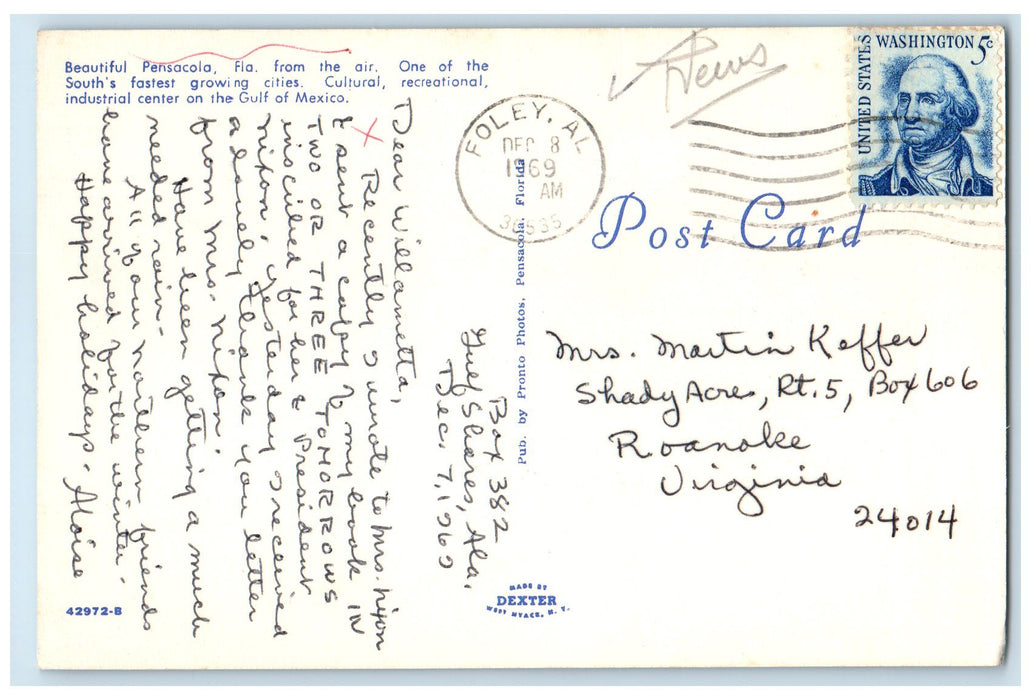 Beautiful Pensacola, Fla. from the air. One of the
South's fastest growing cities. Cultural, recreational,
industrial center on the Gulf of Mexico.
Box 382
Gulf Shores, Ala.
Dec. 7, 1969
Dear Willametta,
Recently I wrote to Mrs. Nixon
& sent a copy of my book IN
TWO OR THREE TOMORROWS
inscribed for her & President
Nixon. Yesterday I received
a lovely thank you letter
from Mrs. Nixon.
Have been getting a much
needed rain-
All your northern friends
have arrived for the winter.
Happy holidays. Aloise
42972-B
Pub. by Pronto Photos, Pensacola, Florida
MADE BY
DEXTER
WEST NYACK, N. Y.
News
FOLEY, AL
DEC 8
1969
AM
UNITED STATES
WASHINGTON 5c
Post Card
Mrs. Martin Keffer
Shady Acres, Rt. 5, Box 606
Roanoke
Virginia
24014